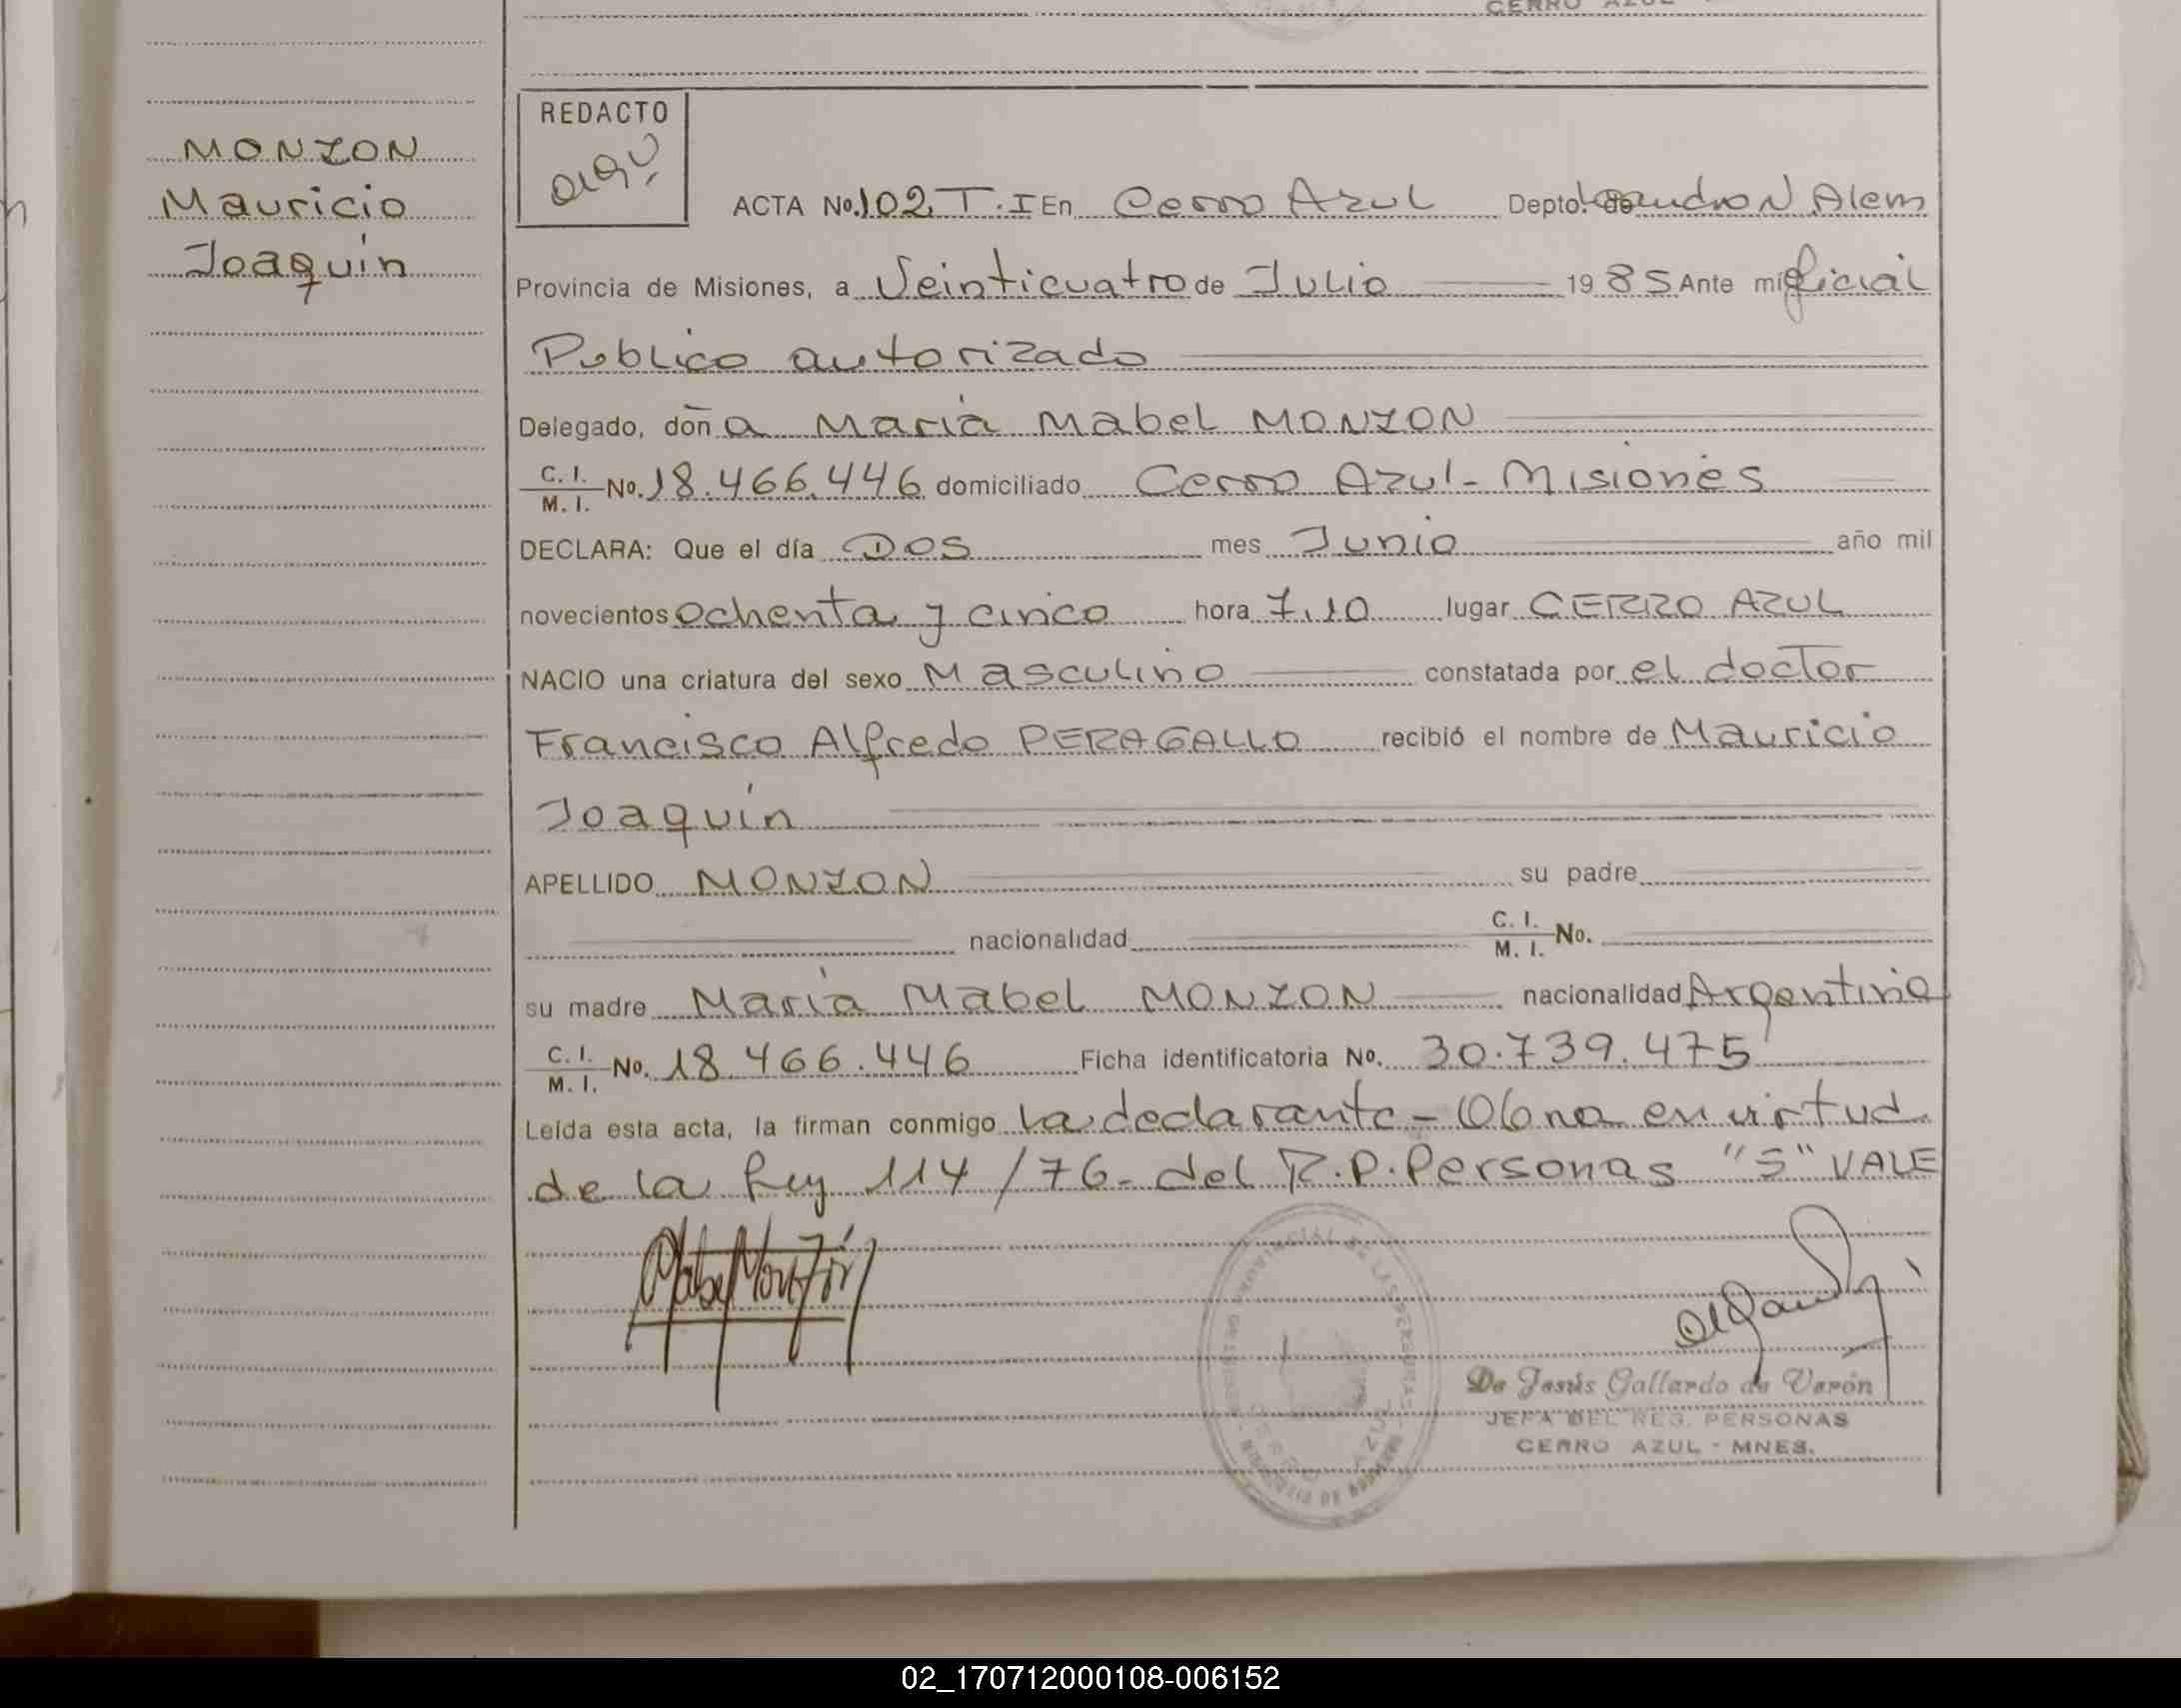 CERRO AZUL
MONZON
Mauricio
Joaquín
REDACTO
ACTA No. 102 T.I En Cerro Azul Depto. de Leandro N. Alem
Provincia de Misiones, a Veinticuatro de Julio 1985 Ante mi Oficial
Publico autorizado
Delegado, doña María Mabel MONZON
C. I. / M. I. No. 18.466.446 domiciliado Cerro Azul - Misiones
DECLARA: Que el día DOS mes Junio año mil
novecientos ochenta y cinco hora 7,10 lugar CERRO AZUL
NACIO una criatura del sexo Masculino constatada por el doctor
Francisco Alfredo PERAGALLO recibió el nombre de Mauricio
Joaquín
APELLIDO MONZON su padre
nacionalidad C. I. / M. I. No.
su madre María Mabel MONZON nacionalidad Argentina
C. I. / M. I. No. 18.466.446 Ficha identificatoria No. 30.739.475
Leída esta acta, la firman conmigo la declarante - Obna en virtud
de la Ley 114/76 - del R.P. Personas "S" VALE
Mabel Monzón
PROVINCIAL DE LAS PERSONAS
CERRO AZUL
MINISTERIO DE GOBIERNO
De Jesús Gallardo de Verón
JEFA DEL REG. PERSONAS
CERRO AZUL - MNES.
02_170712000108-006152